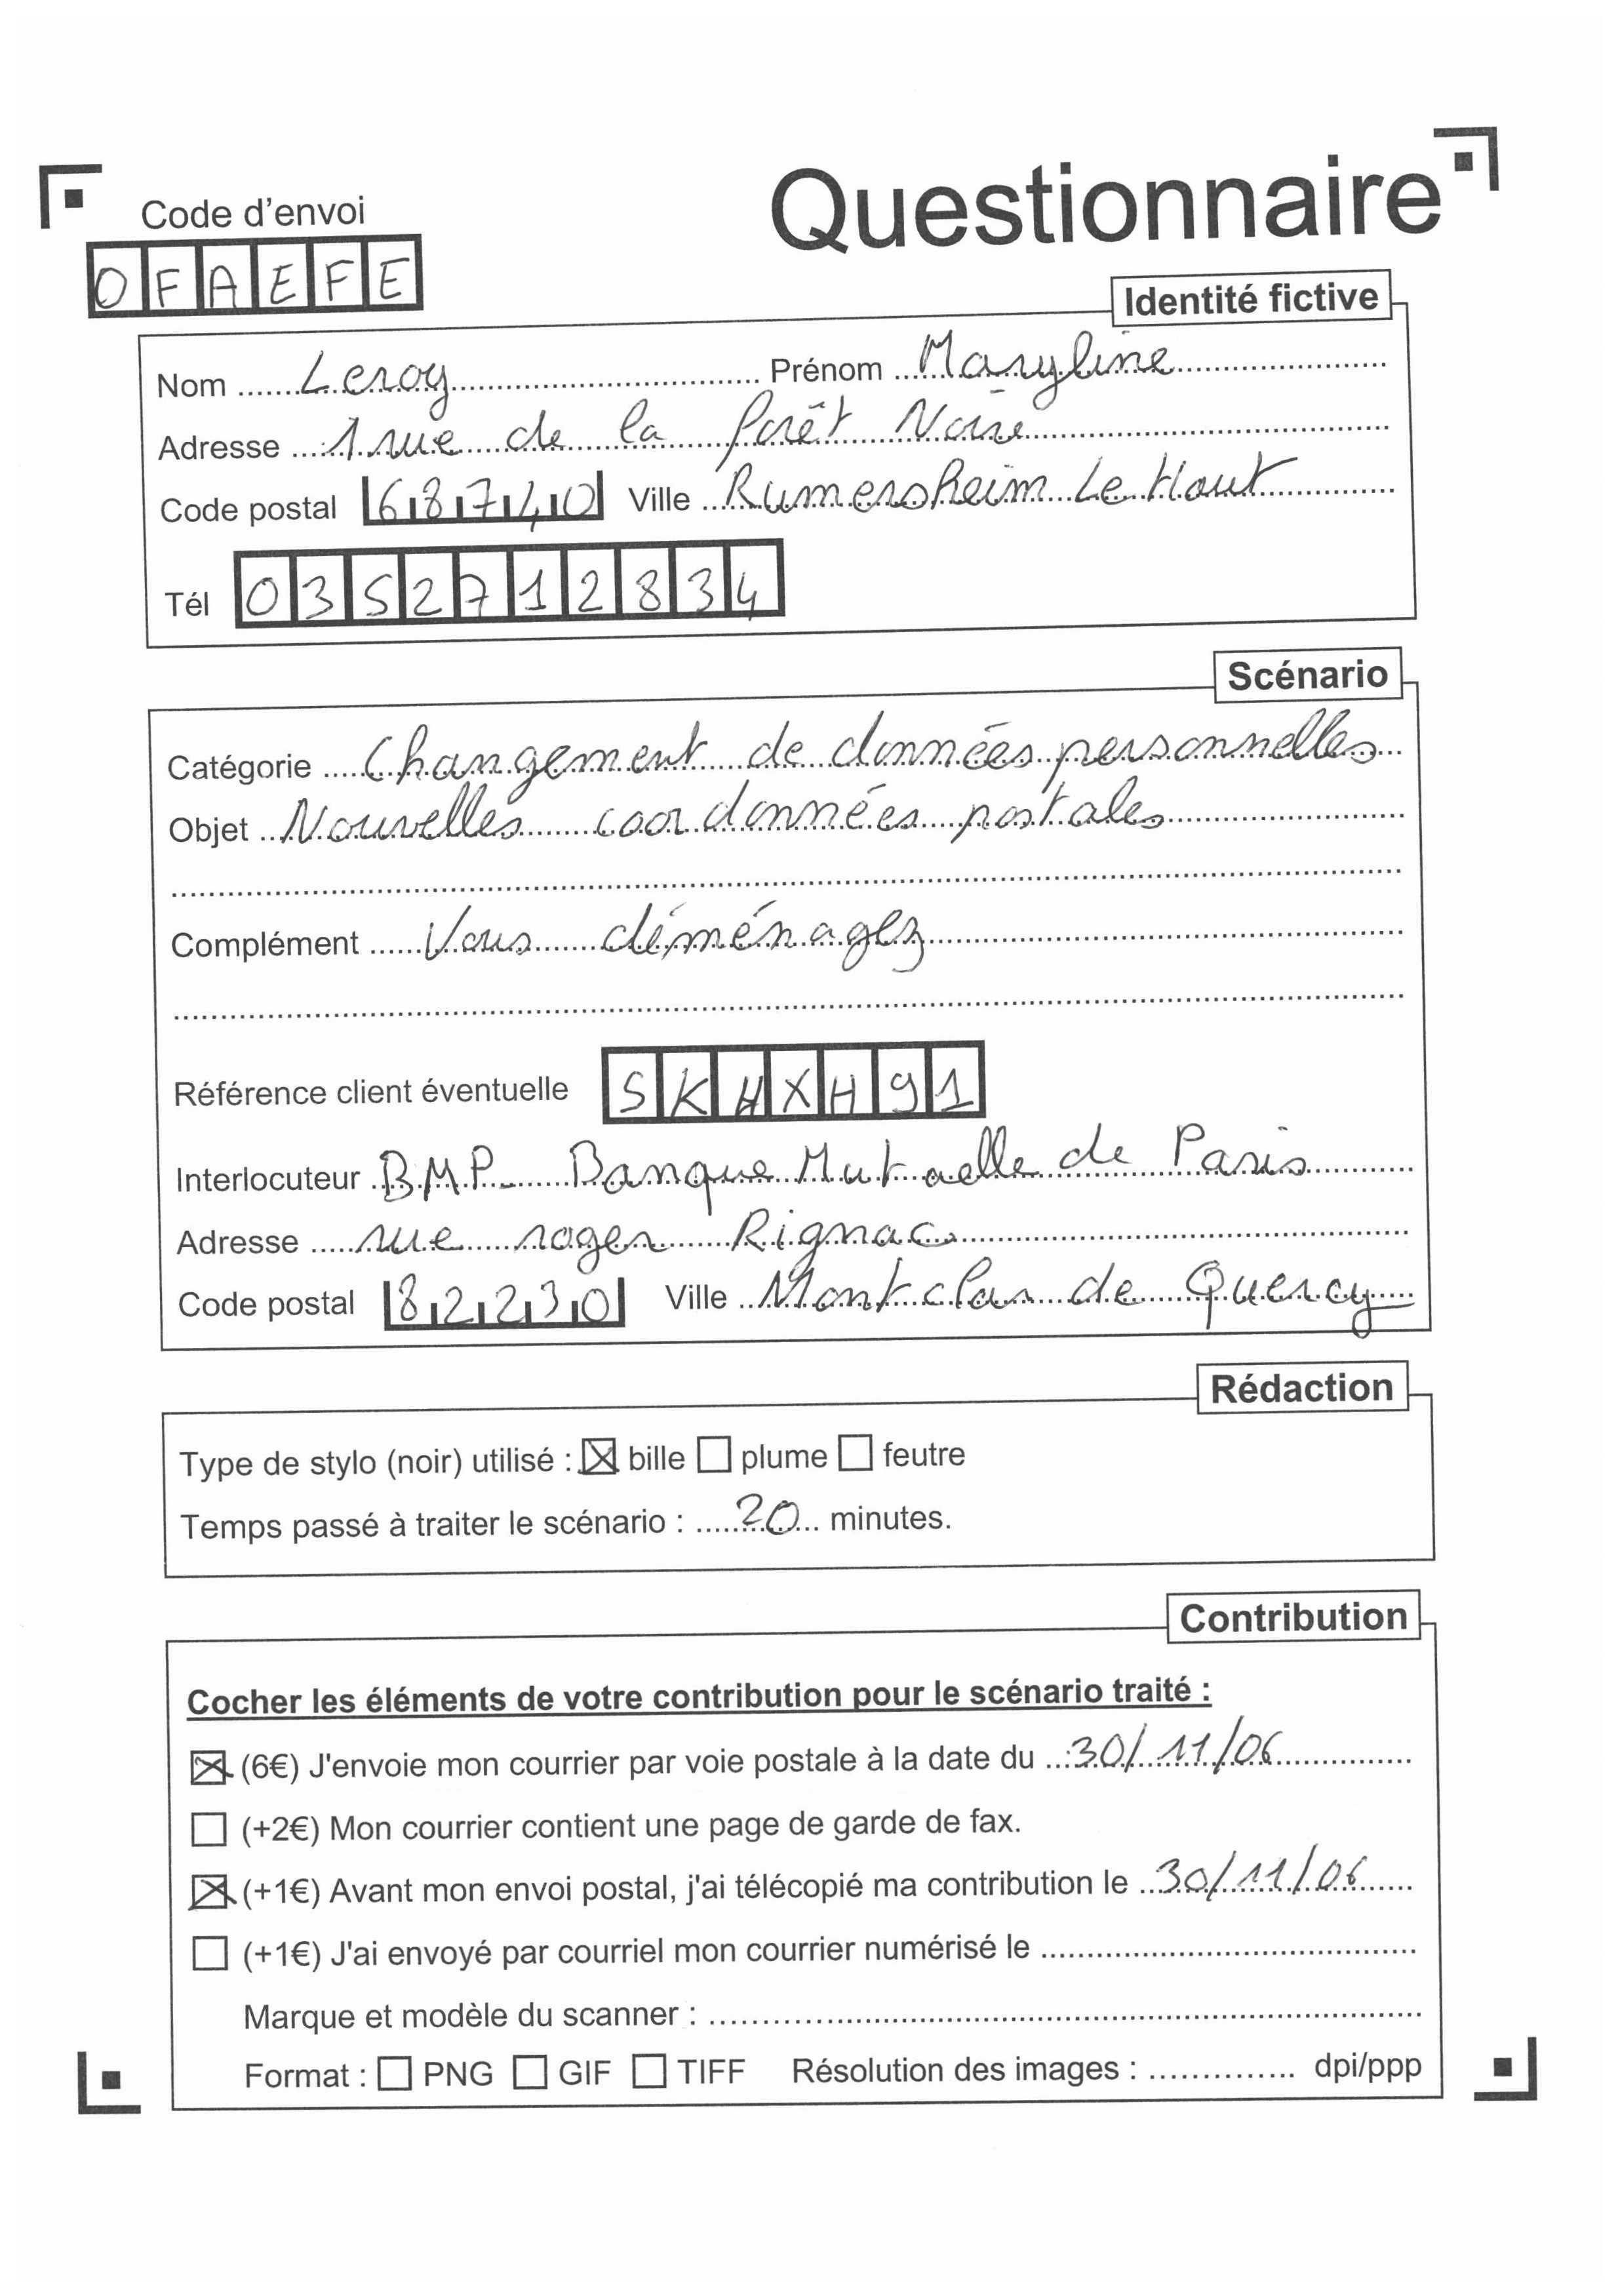 Questionnaire
Code d'envoi
OFAEFE
Identité fictive
Nom Leroy Prénom Maryline
Adresse 1 rue de la forêt Noire
Code postal 68740 Ville Rumersheim Le Haut
Tél 0352712834
Scénario
Catégorie Changement de données personnelles
Objet Nouvelles coordonnées postales
Complément Vous déménagez
Référence client éventuelle SKHXH91
Interlocuteur BMP- Banque Mutuelle de Paris
Adresse rue roger Rignac
Code postal 82230 Ville Montclar de Quercy
Rédaction
Type de stylo (noir) utilisé : ☒ bille ☐ plume ☐ feutre
Temps passé à traiter le scénario : 20 minutes.
Contribution
Cocher les éléments de votre contribution pour le scénario traité :
☒ (6€) J'envoie mon courrier par voie postale à la date du 30/11/06
☐ (+2€) Mon courrier contient une page de garde de fax.
☒ (+1€) Avant mon envoi postal, j'ai télécopié ma contribution le 30/11/06
☐ (+1€) J'ai envoyé par courriel mon courrier numérisé le
Marque et modèle du scanner :
Format : ☐ PNG ☐ GIF ☐ TIFF Résolution des images : dpi/ppp